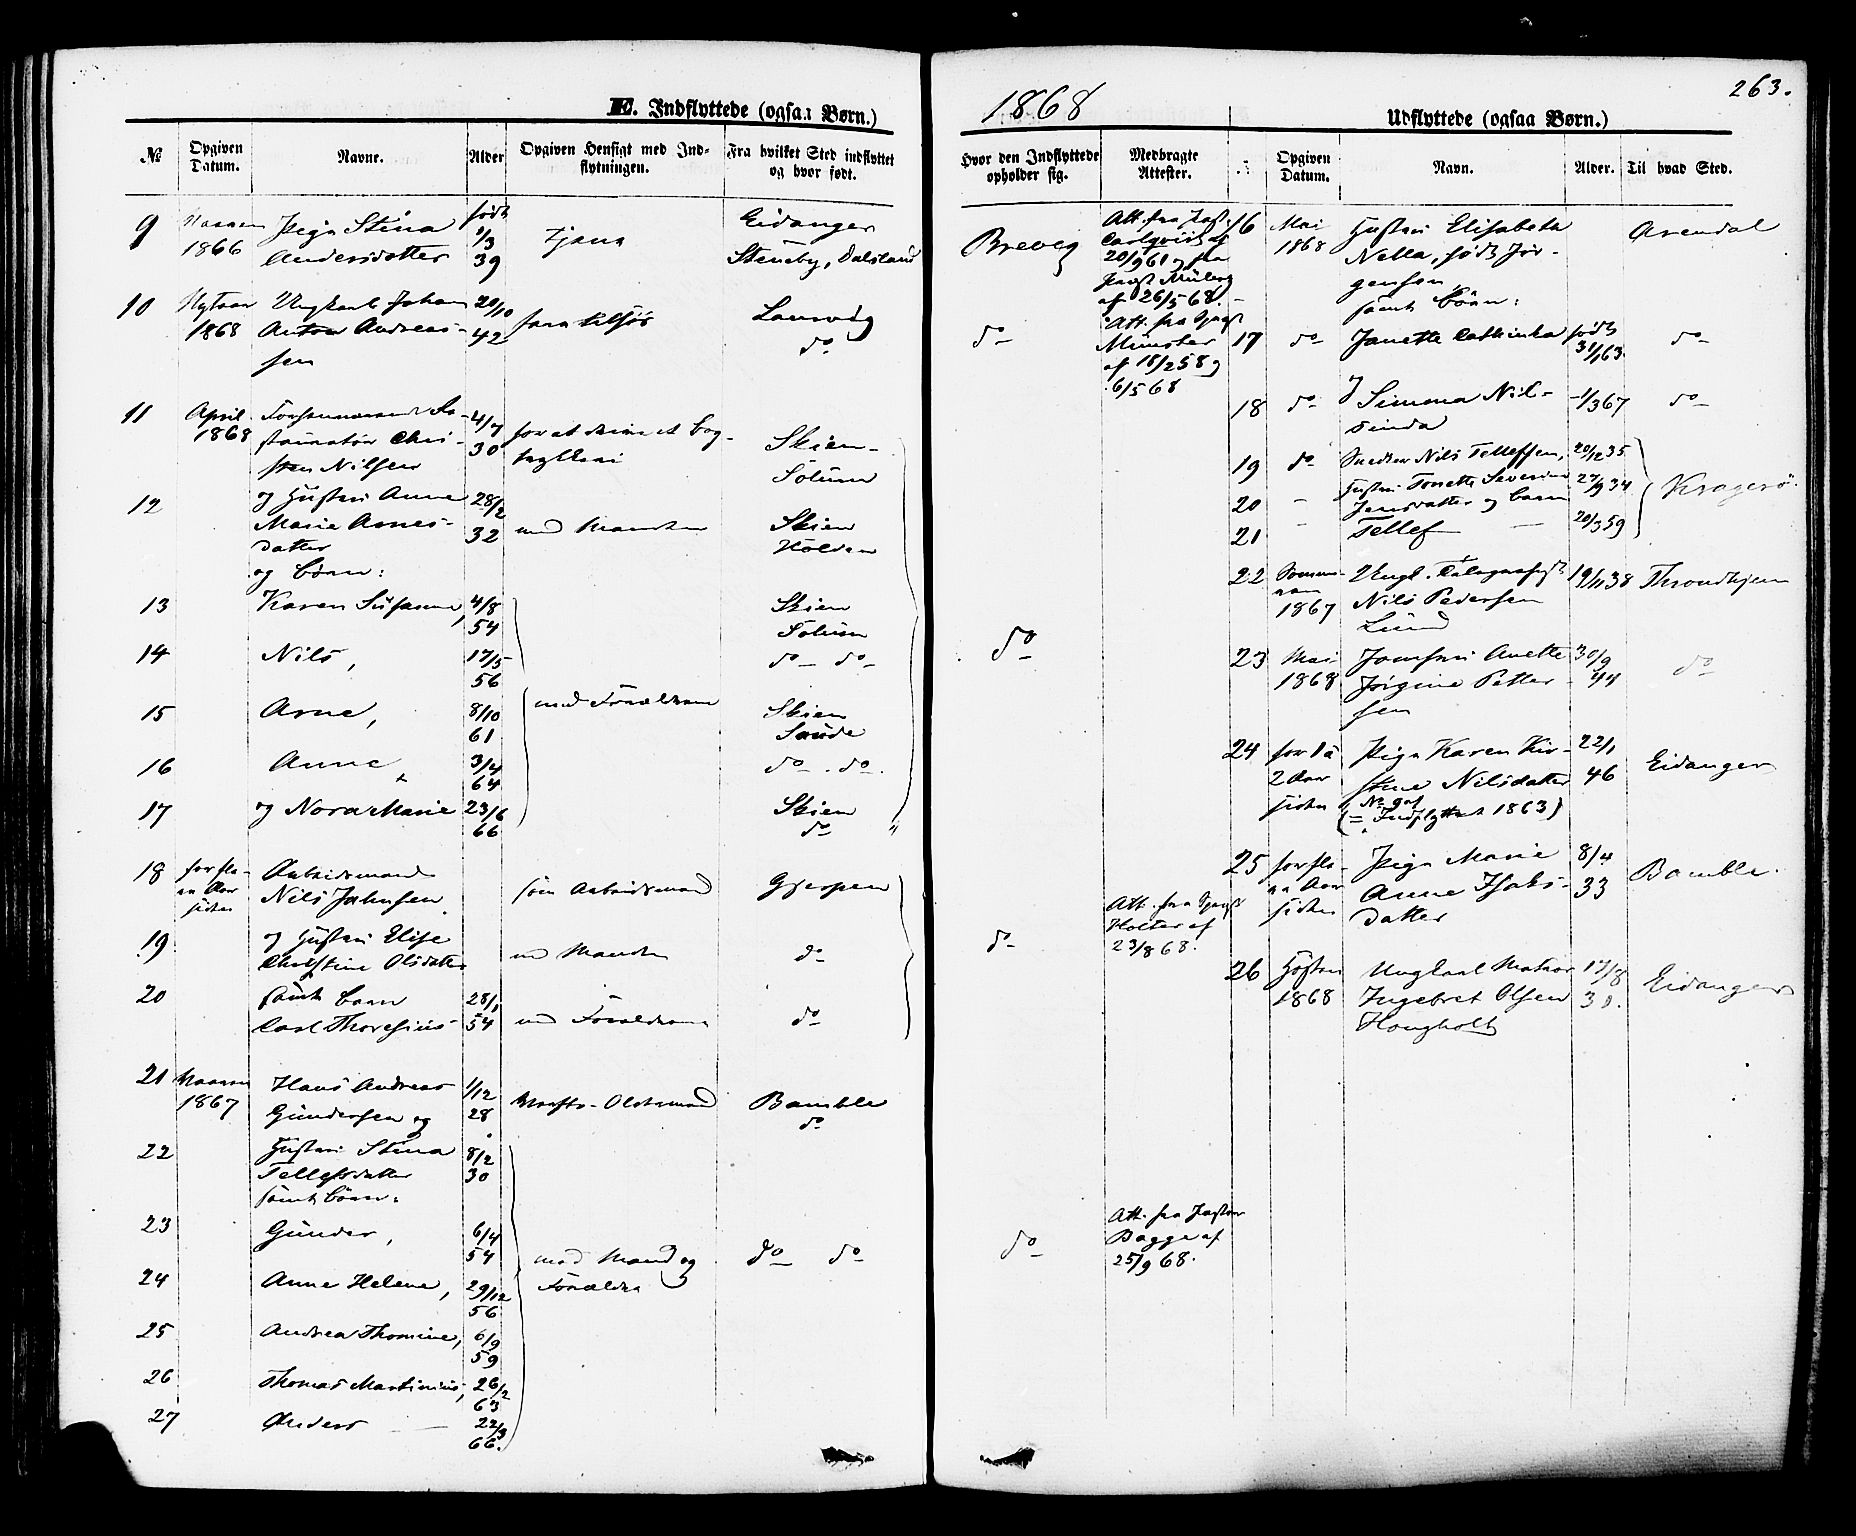 E. Indflyttede (ogsaa Børn.)
№
Opgiven Datum.
Navne.
Alder
Opgiven Hensigt med Indflytningen.
Fra hvilket Sted indflyttet og hvor født.
9
1866
Pige Stina
Andersdatter
født
1/3
39
tjene
Eidanger
Steneby, Dalsland
10
Nytaar
1868
Ungkarl Johan
Anton Andreas-
sen
20/10
42
fare tilsøs
Laurvig
do
11
April
1868
sten Nilsen
4/7
30
Skien
Solum
12
og Hustru Anne
Marie Arnes-
datter
og Børn:
28/2
32
med Manden
Skien
Holden
13
Karen Susanne,
4/8
54
Skien
Solum
14
Nils,
17/5
56
do do
15
Arne,
8/10
61
med Forældrene
Skien
Saude
16
Anne
3/4
64
do. do.
17
og Nora Marie
23/6
66
Skien
do
18
Arbeidsmand
Nils Johnsen
som Arbeidsmand
Gjerpen
19
og Hustru Elise
Christine Olsdatter
med Manden
do
20
samt Barn
Carl Thoresius
28/1
54
med Forældrene
do
21
1867
Hans Andreas
Gundersen og
1/12
28
Bamble
do
22
Hustru Stina
Tellefsdatter
samt Børn:
8/2
30
23
Gunder,
6/4
54
med Mand og
Forældre
do do
24
Anne Helene,
29/12
56
25
Andrea Thomine,
6/9
59
26
Thomas Martinius,
26/2
63
27
Anders
22/3
66.
1868
263.
Udflyttede (ogsaa Børn.)
Hvor den Indflyttede opholder sig.
Medbragte Attester.
Opgiven Datum.
Navn.
Alder.
Til hvad Sted.
Brevig
Att. fra Past.
Carlqvist af
20/9 61 og fra
af 26/5 68.
do
Att. fra
Münster
af 18/2 58 og
6/5 68
do
do
Att. fra
Holter af
23/8 68.
do
Att. fra Pastor
Bagge af
25/9 68.
16
Mai
1868
Hustru Elisabeth
Nella, født Jør-
gensen,
samt Børn:
Arendal
17
do
Janette Cathinka
født
31/1 63.
do
18
do
og Simma Nil-
sinda
1/3 67
do
19
do
Snedker Nils Tellefsen,
20/12 35
20
Hustru Tonette Severine
Jensdatter og Barn
27/9 34
Kragerö.
21
Tellef
20/3 59
22
1867
Ungk. Telegrafist
Nils Pedersen
Lund
19/11 38
Throndhjem
23
Mai
1868
Jomfru Anette
Jörgine Petter-
sen
30/9
44
do
24
for 1 à
2 Aar
siden
Pige Karen Kir-
stine Nilsdatter
(= No 9 af
Indflyttet 1863)
22/1
46
Eidanger
25
for fle-
re Aar
siden
Pige Marie
Anne Isaks-
datter
8/4
33
Bamble.
26
Høsten
1868
Ungkarl Matros
Ingebret Olsen
Hougholt
17/8
30.
Eidanger